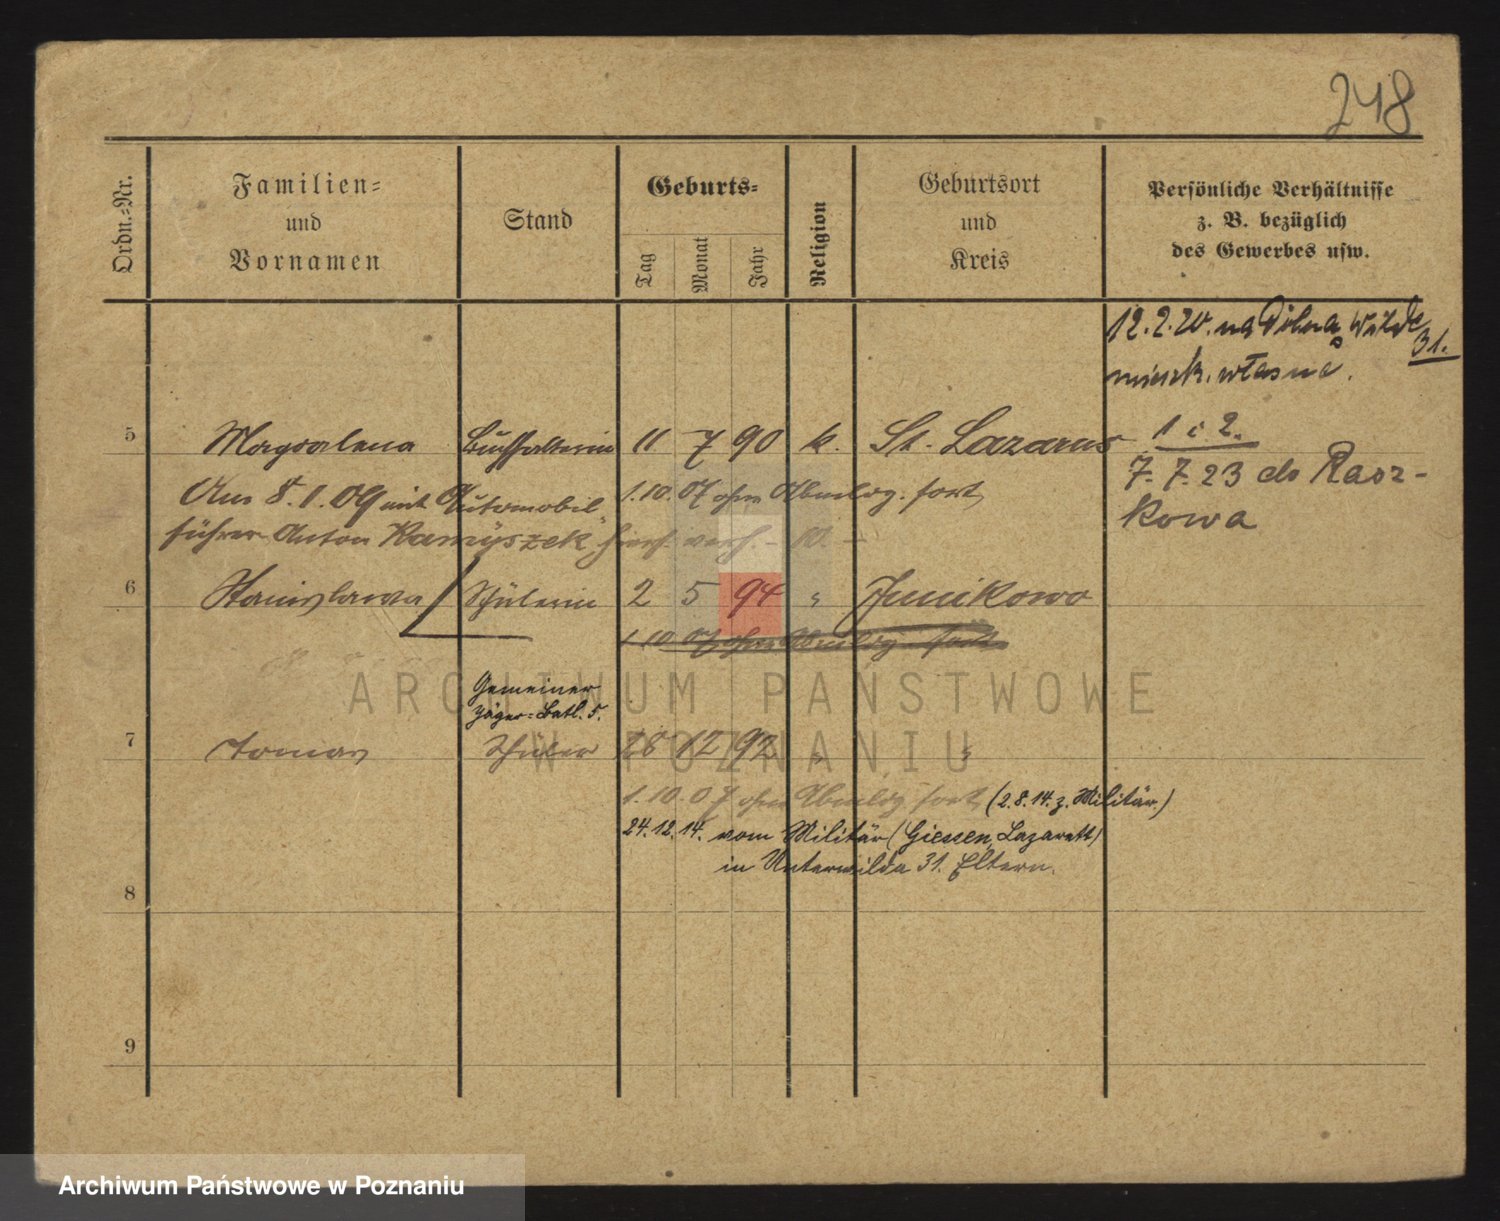 248
Ordn.-Nr.
Familien-
und
Vornamen
Stand
Geburts-
Tag
Monat
Jahr
Religion
Geburtsort
und
Kreis
Persönliche Verhältnisse
z. B. bezüglich
des Gewerbes usw.
12.2.20. na Dolna Wilde
31.
mieszk. własne.
5 Magdalena Buchhalterin 11 7 90 k. St. Lazarus
1 i 2.
7. 7. 23 do Rasz-
kowa
Am 8.1.09 mit Automobil
1.10.07 ohne Abmldg. fort
führer Anton Ramyszek hier verh. - 10. -
6 Stanislawa Schülerin 2 5 94 " Junikowo
1.10.07 ohne Abmldg. fort
Gemeiner
Jäger-Batl. 5.
7 Tomas Schüler 28 12 92 " "
1.10.07 ohne Abmldg. fort (2.8.14. z. Militär)
24.12.14. vom Militär (Giessen, Lazarett)
in Unterwilda 31. Eltern.
8
9
ARCHIWUM PAŃSTWOWE
W POZNANIU
Archiwum Państwowe w Poznaniu